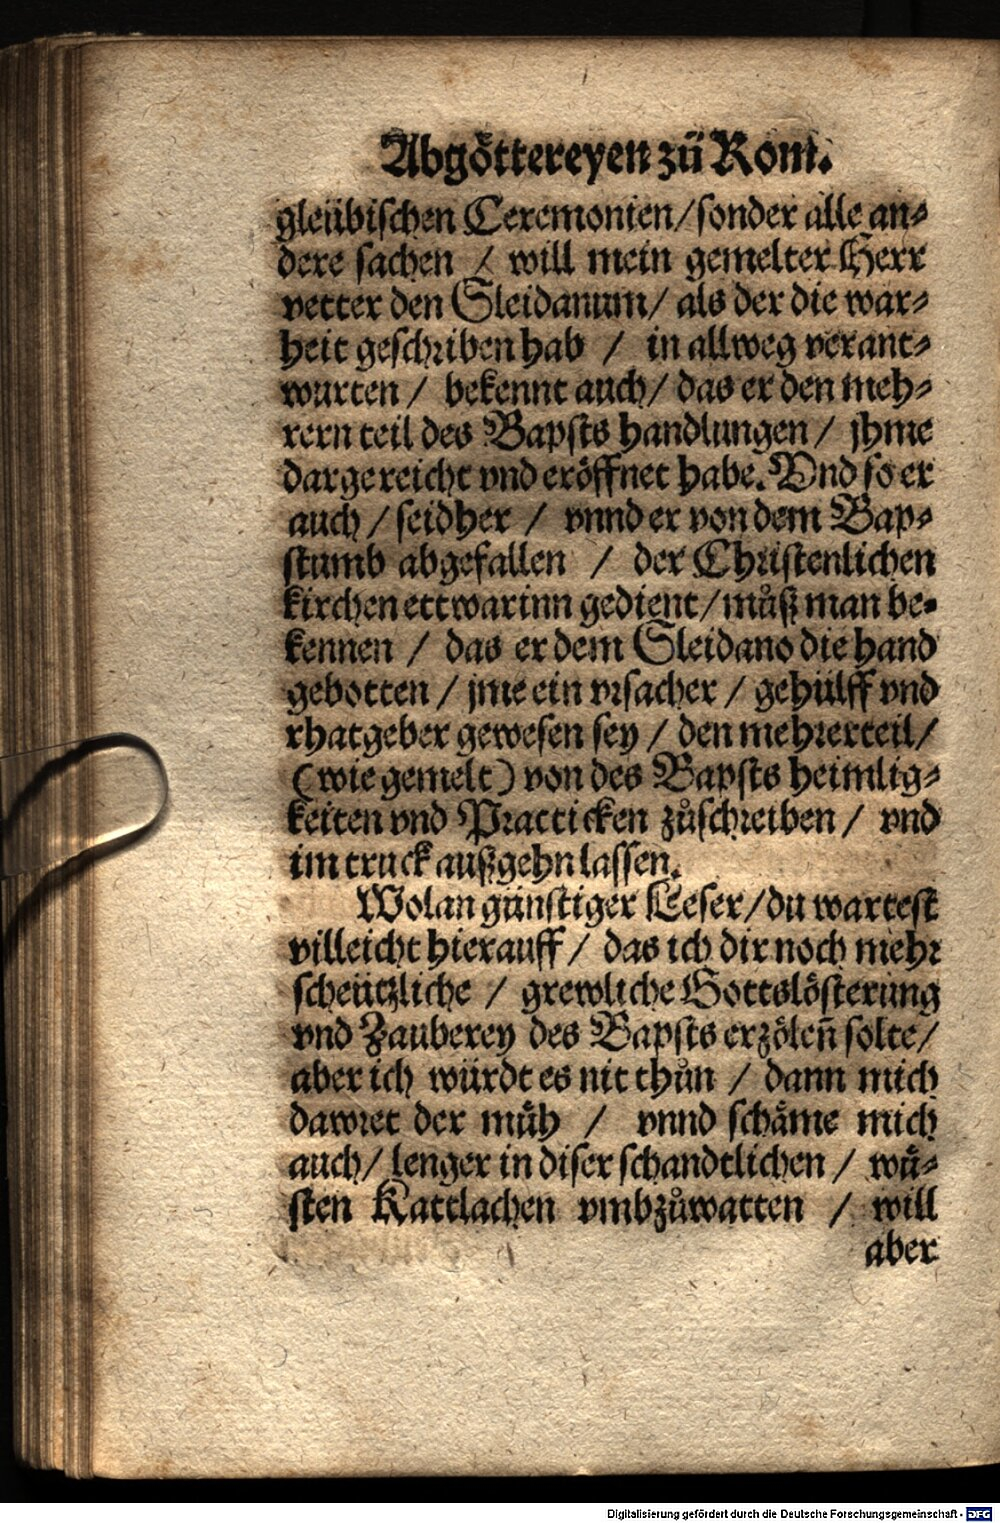 Abgöttereyen zů Rom.
gleübischen Ceremonien / sonder alle an⸗
dere sachen / will mein gemelter Herr
vetter den Sleidanum / als der die war⸗
heit geschriben hab / in allweg verant⸗
wurten / bekennt auch / das er den meh⸗
rern teil des Bapsts handlungen / jhme
dargereicht vnd eröffnet habe. Vnd so er
auch / seidher / vnnd er von dem Bap⸗
stumb abgefallen / der Christenlichen
kirchen ettwarinn gedient / můß man be⸗
kennen / das er dem Sleidano die hand
gebotten / jme ein vrsacher / gehülff vnd
rhatgeber gewesen sey / den mehrerteil /
(wie gemelt) von des Bapsts heimlig⸗
keiten vnd Practicken zůschreiben / vnd
im truck außgehn lassen.
Wolan günstiger Leser / du wartest
villeicht hierauff / das ich dir noch mehr
scheützliche / grewliche Gottslösterung
vnd Zauberey des Bapsts erzölen̄ solte /
aber ich würdt es nit thůn / dann mich
dawret der müh / vnnd schäme mich
auch / lenger in diser schandtlichen / wü⸗
sten Kattlachen vmbzůwatten / will
aber
Digitalisierung gefördert durch die Deutsche Forschungsgemeinschaft - DFG